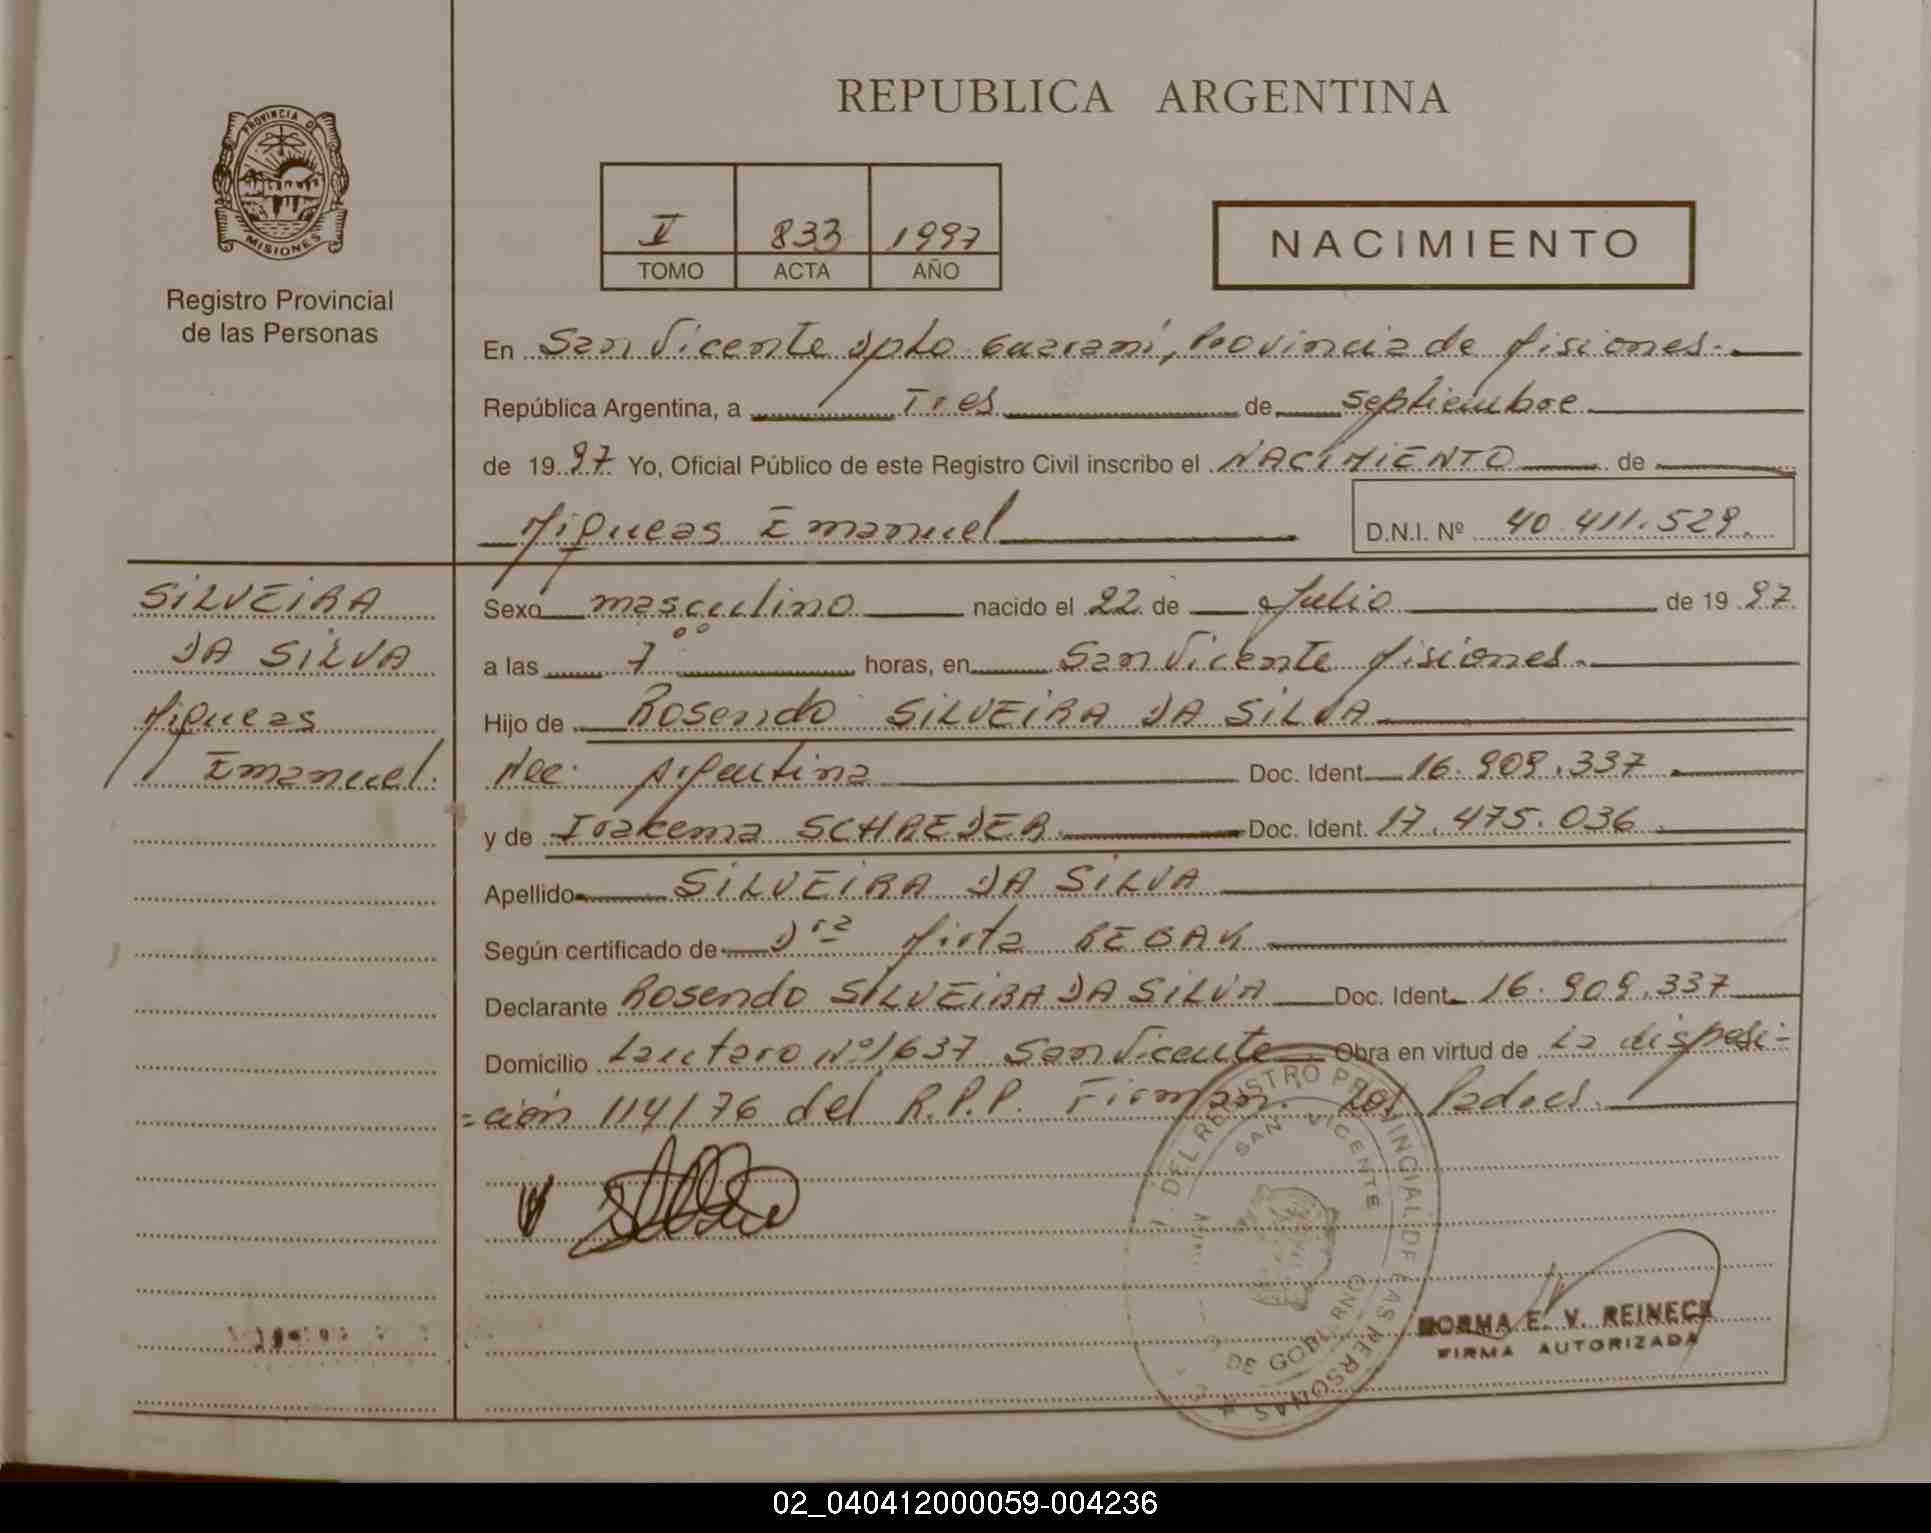 REPUBLICA ARGENTINA
PROVINCIA DE
MISIONES
Registro Provincial
de las Personas
V 833 1997
TOMO ACTA AÑO
NACIMIENTO
En San Vicente Dpto Guaraní, Provincia de Misiones.
República Argentina, a Tres de septiembre
de 1997 Yo, Oficial Público de este Registro Civil inscribo el NACIMIENTO de
Miqueas Emanuel D.N.I. Nº 40.411.529.
SILVEIRA
DA SILVA
Miqueas
Emanuel.
Sexo masculino nacido el 22 de Julio de 1997
a las 7°° horas, en San Vicente Misiones.
Hijo de Rosendo SILVEIRA DA SILVA
Nac. Argentina Doc. Ident. 16.909.337
y de Irakema SCHREDER Doc. Ident. 17.475.036
Apellido SILVEIRA DA SILVA
Según certificado de Dra Mirta
Declarante Rosendo SILVEIRA DA SILVA Doc. Ident. 16.909.337
Domicilio Lautaro Nº 1637 San Vicente Obra en virtud de la disposi-
=ción 114/76 del R.P.P. Firman los Padres.
DEL REGISTRO PROVINCIAL DE LAS PERSONAS
SAN VICENTE
DE GOBIERNO
NORMA E. V. REINECK
FIRMA AUTORIZADA
02_040412000059-004236